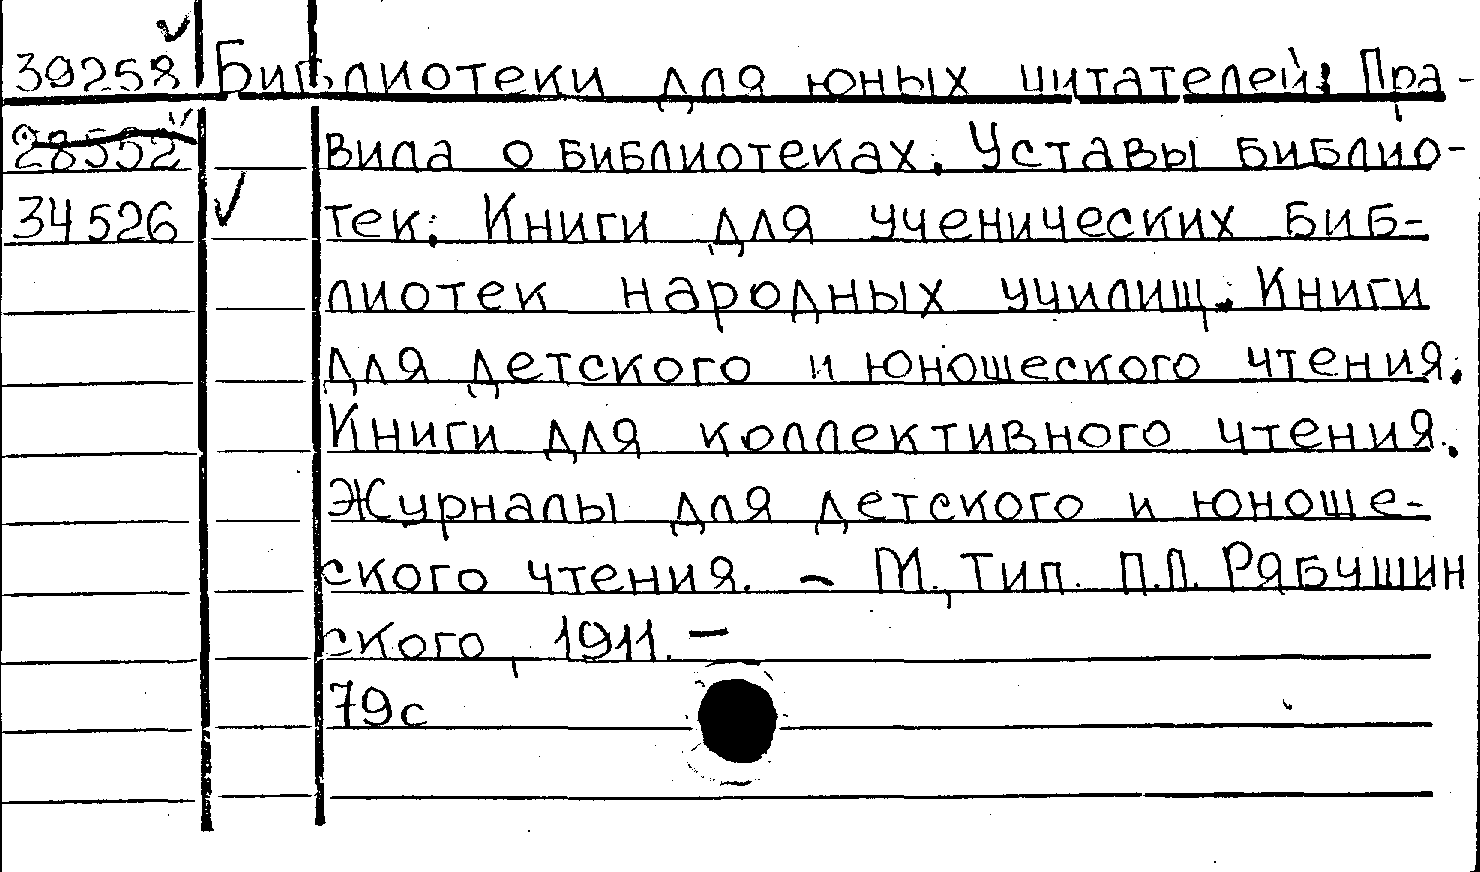 39258 Библиотеки для юных читателей: Пра-
28552 вила о библиотеках. Уставы библио-
34526 тек: Книги для ученических биб-
лиотек народных училищ. Книги
для детского и юношеского чтения.
Книги для коллективного чтения.
Журналы для детского и юноше-
ского чтения. – М., Тип. П.П. Рябушин
ского, 1911. –
79с